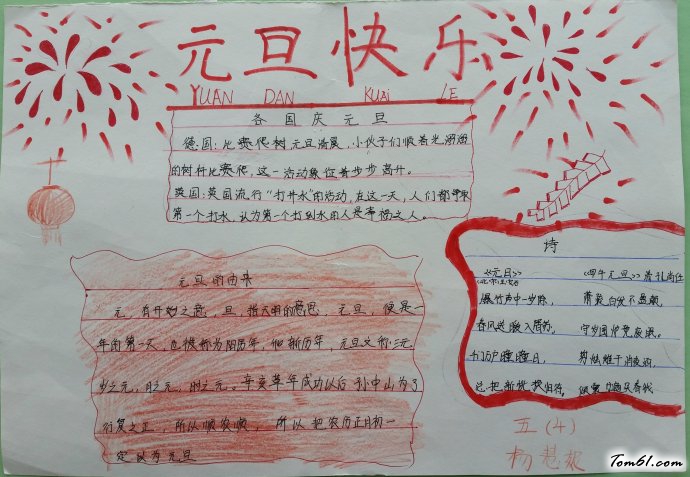 元旦快乐
YUAN DAN KUAI LE
各国庆元旦
德国:比赛爬树元旦活展,小伙子们顺着光溜溜
的树杆比赛爬,这一活动象征着步步高升。
英国:英国流行"打井水"的活动,在这一天,人们都争取
第一个打水,认为第一个打到水的人是幸福之人。
元旦的由来
元,有开始之意,旦,指天明的意思,元旦,便是一
年的第一天,也被称为阳历年,他新历年,元旦又称:三元
岁之元,月之元,时之元。辛亥革年成功以后 孙中山为了
行夏之正,所以顺农顺,所以把农历正月初一
定以为元旦
诗
《元日》
爆竹声中一岁除,
春风送暖入屠苏,
千门万户瞳瞳日,
总把新桃换旧符,
《四午元旦》清孔尚任
萧萧白发不盈颠,
守岁围炉竟废眠。
剪烛催干消夜酒,
五(4)
Tom61.com